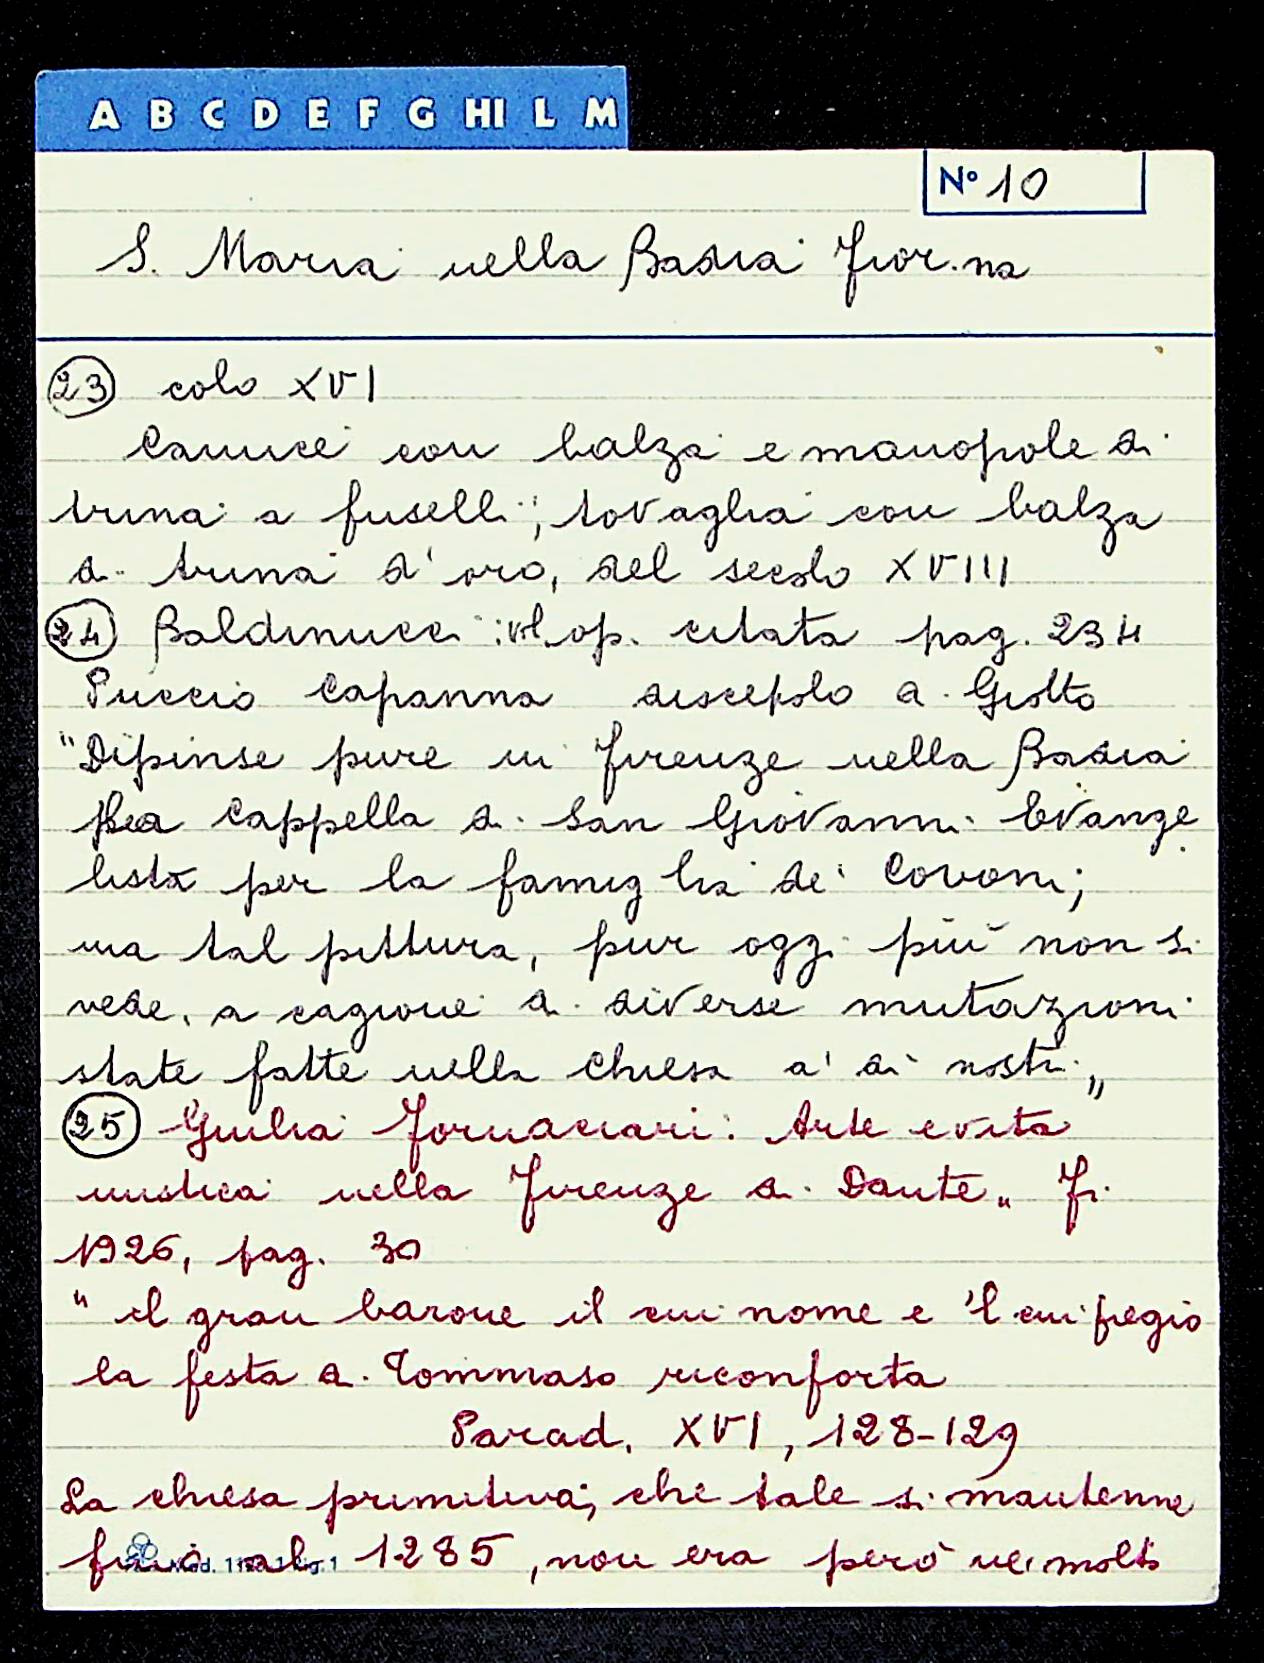 A B C D E F G HI L M
N° 10
S. Maria nella Badia Fior.na
23 colo XVI
Camice con balza e manopole di
trina a fuselli; tovaglia con balza
di trina d'oro, del secolo XVIII
24 Baldinucci: vol. op. citata pag. 234
Puccio Capanna discepolo di Giotto
"Dipinse pure in Firenze nella Badia
la Cappella di San Giovanni Evange
lista per la famiglia de' Covoni;
ma tal pittura, pur oggi più non si
vede, a cagione di diverse mutazioni
state fatte nella Chiesa a' dì nostri„
25 Giulia Fornaciari: Arte e vita
mistica nella Firenze di Dante„ Fi.
1926, pag. 30
"il gran barone il cui nome e 'l cui pregio
la festa di Tommaso riconforta
Parad. XVI, 128-129
La chiesa primitiva, che tale si mantenne
fino al 1285, non era però nè molto
Mod. 1